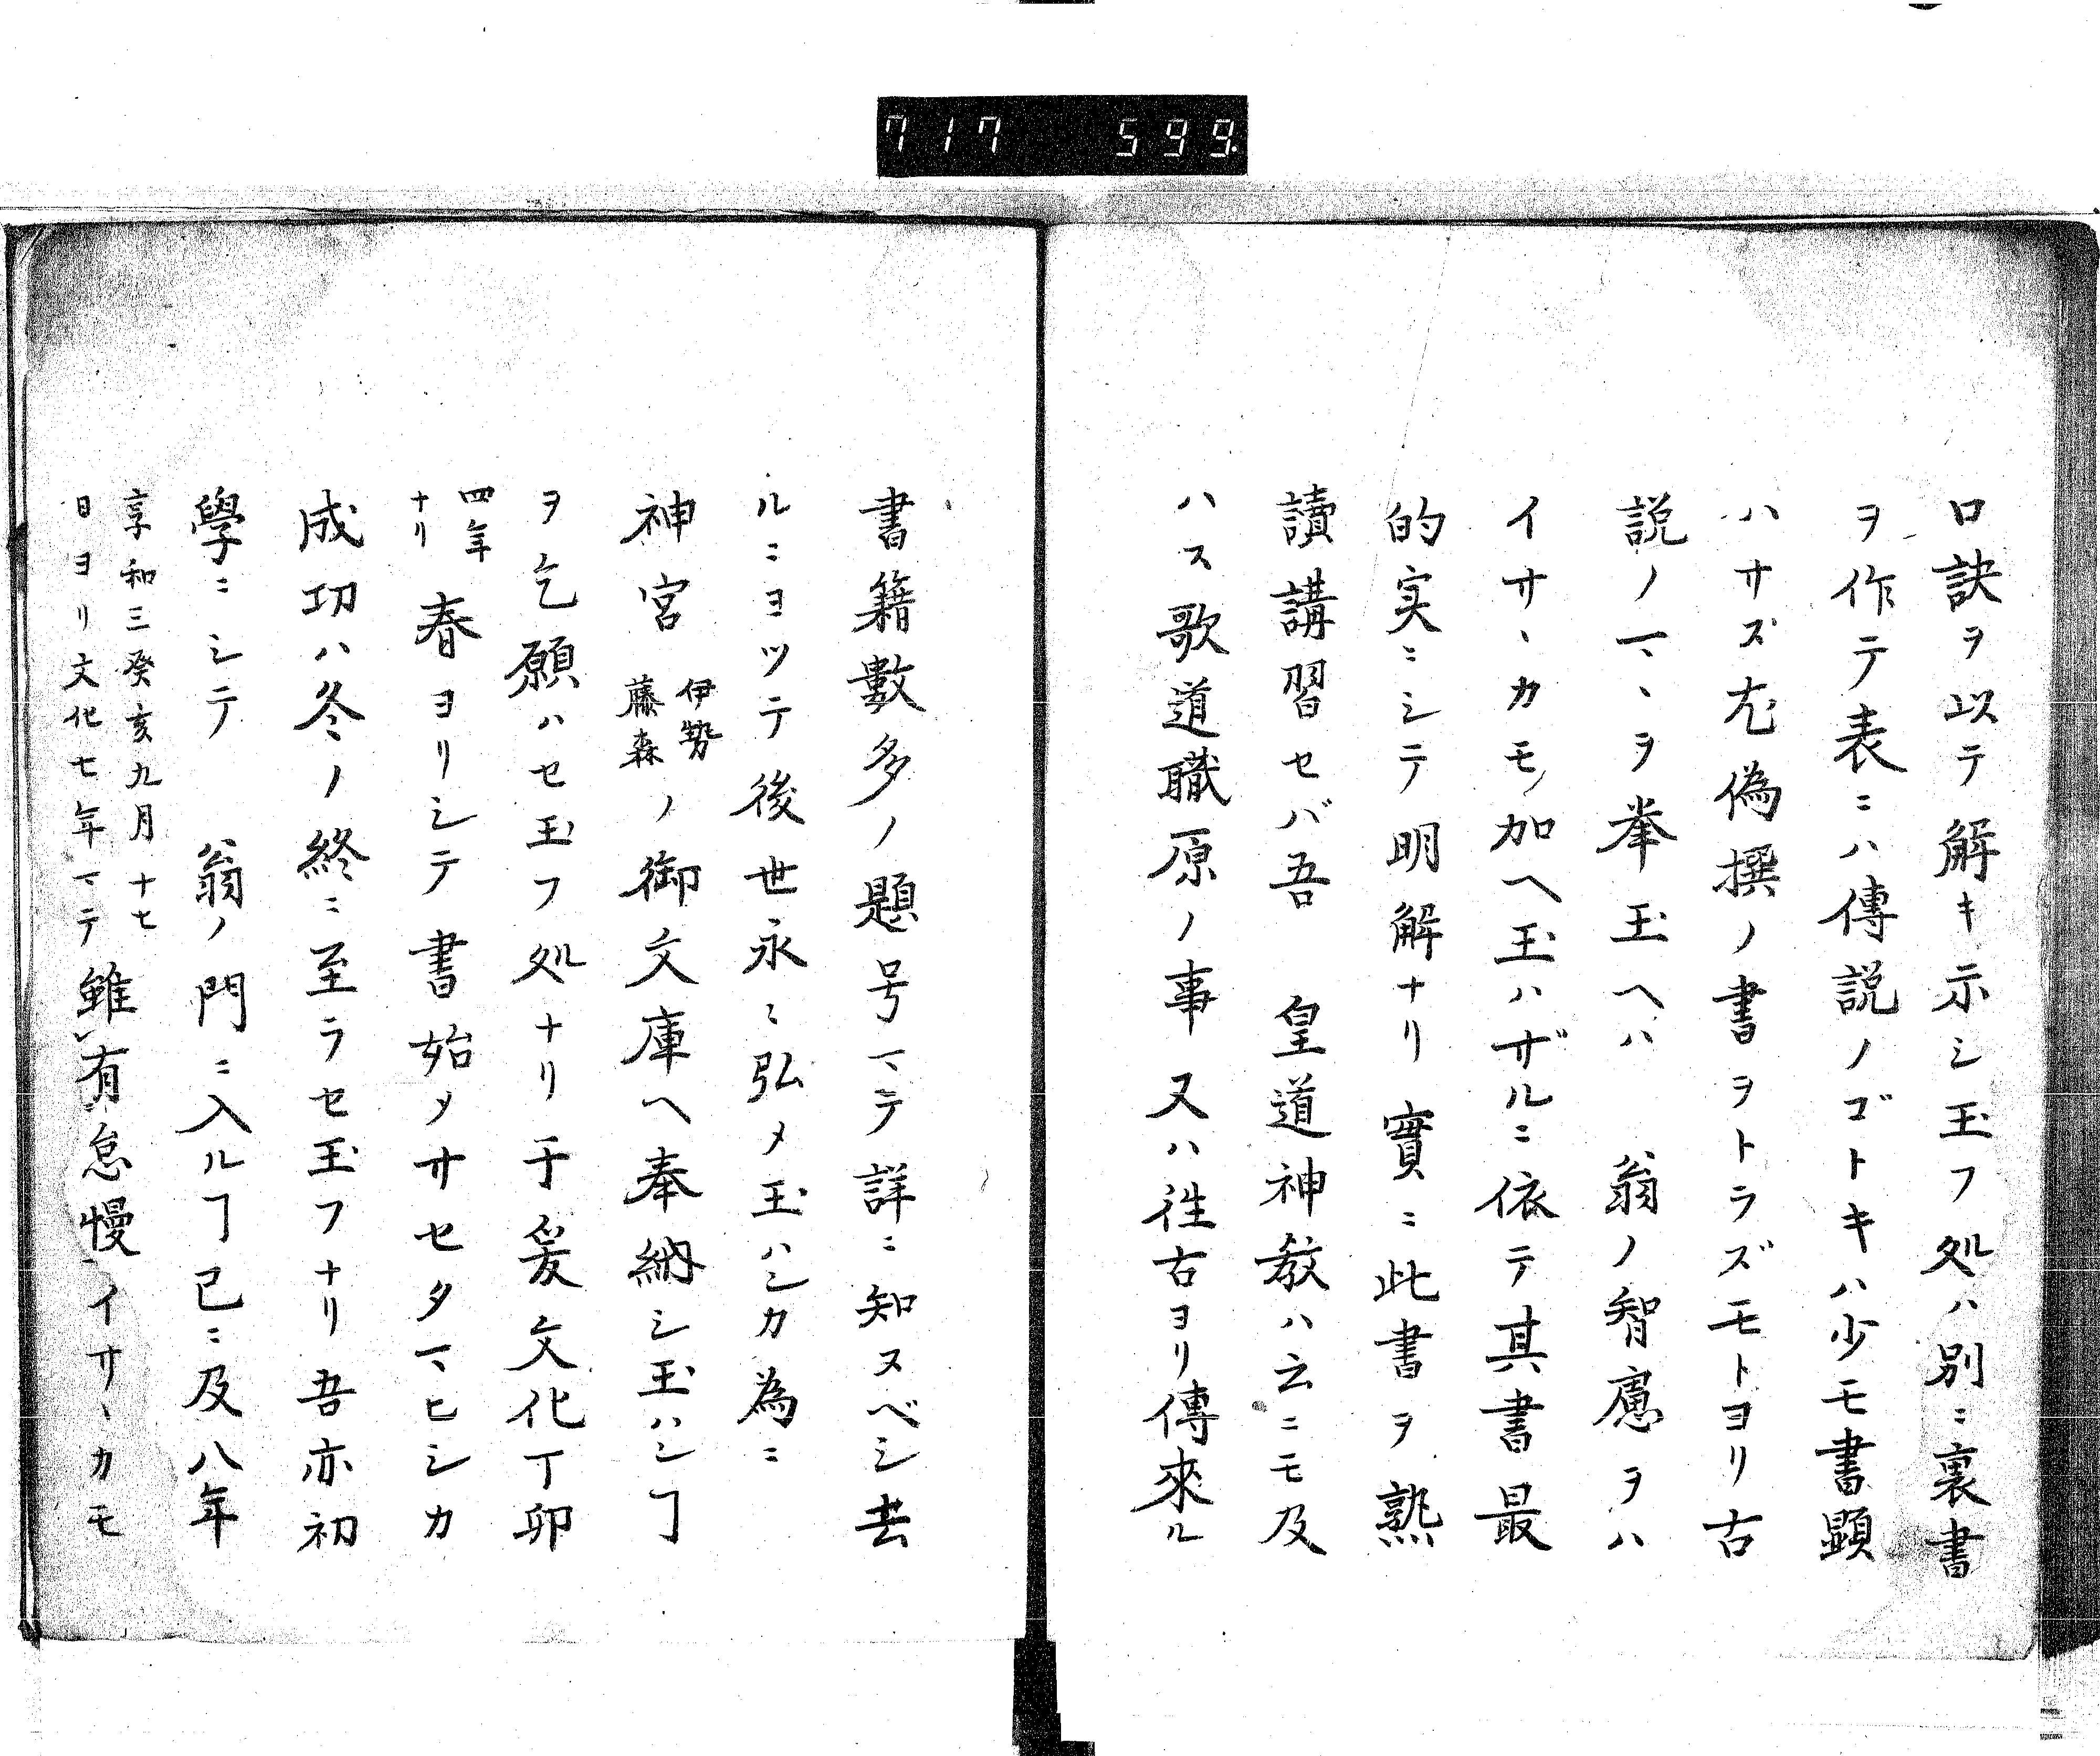 717 599.
口訣ヲ以テ解キ示シ玉フ処ハ別ニ裏書
ヲ作テ表ニハ傳説ノゴトキハ少モ書顕
ハサズ尤偽撰ノ書ヲトラズモトヨリ古
説ノマヽヲ挙玉ヘハ 翁ノ智慮ヲハ
イサヽカモ加ヘ玉ハザルニ依テ其書最
的実ニシテ明解ナリ實ニ此書ヲ熟
讀講習セバ吾 皇道神教ハ云ニモ及
ハス歌道職原ノ事又ハ徃古ヨリ傳來ル
書籍數多ノ題号マテ詳ニ知ヌベシ去
ルニヨツテ後世永ク弘メ玉ハシカ為ニ
神宮 伊勢 藤森 ノ御文庫ヘ奉納シ玉ハンヿ
ヲ乞願ハセ玉フ処ナリ于爰文化丁卯
四年ナリ 春ヨリシテ書始メサセタマヒシカ
成功ハ冬ノ終ニ至ラセ玉フナリ吾亦初
學ニシテ 翁ノ門ニ入ルヿ已ニ及八年
享和三癸亥九月十七
日ヨリ文化七年マテ 雖有怠慢イサヽカモ